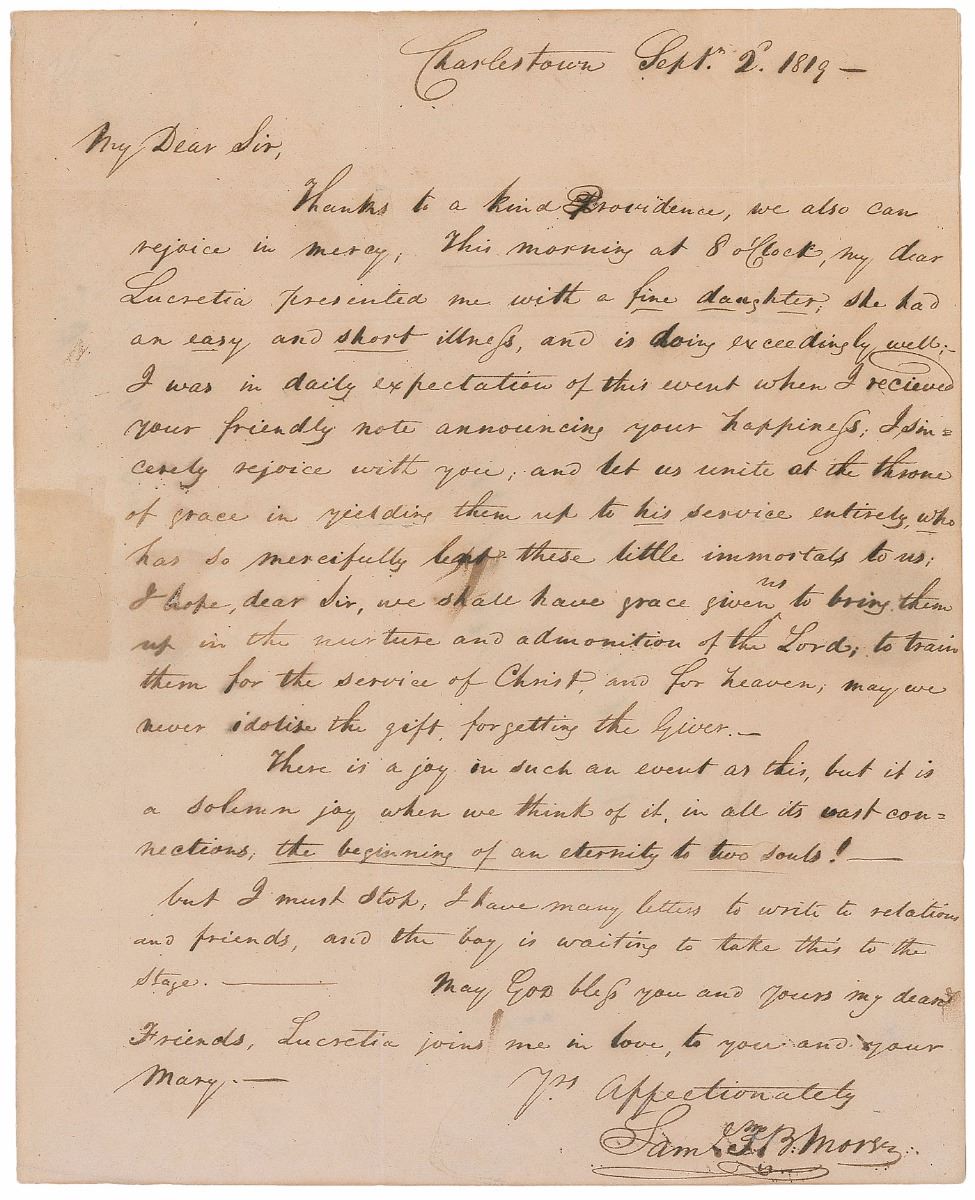 Charlestown Sept.r 2d. 1819 —
My Dear Sir,
Thanks to a kind Providence, we also can
rejoice in mercy; This morning at 8 o'Clock, my dear
Lucretia presented me with a fine daughter; she had
an easy and short illness, and is doing exceedingly well;-
I was in daily expectation of this event when I recieved
your friendly note announcing your happiness; I sin=
cerely rejoice with you; and let us unite at the throne
of grace in yielding them up to his service entirely, who
has so mercifully lent these little immortals to us;
I hope, dear Sir, we shall have grace given us to bring them
up in the nurture and admonition of the Lord; to train
them for the service of Christ, and for heaven; may we
never idolise the gift, forgetting the Giver. —
There is a joy in such an event as this, but it is
a solemn joy when we think of it, in all its vast con=
nections, the beginning of an eternity to two souls! —
but I must stop, I have many letters to write to relations
and friends, and the boy is waiting to take this to the
Stage. — May God bless you and yours my dear
Friends, Lucretia joins me in love, to you and your
Mary. — Yrs Affectionately
Saml. F. B. Morse.